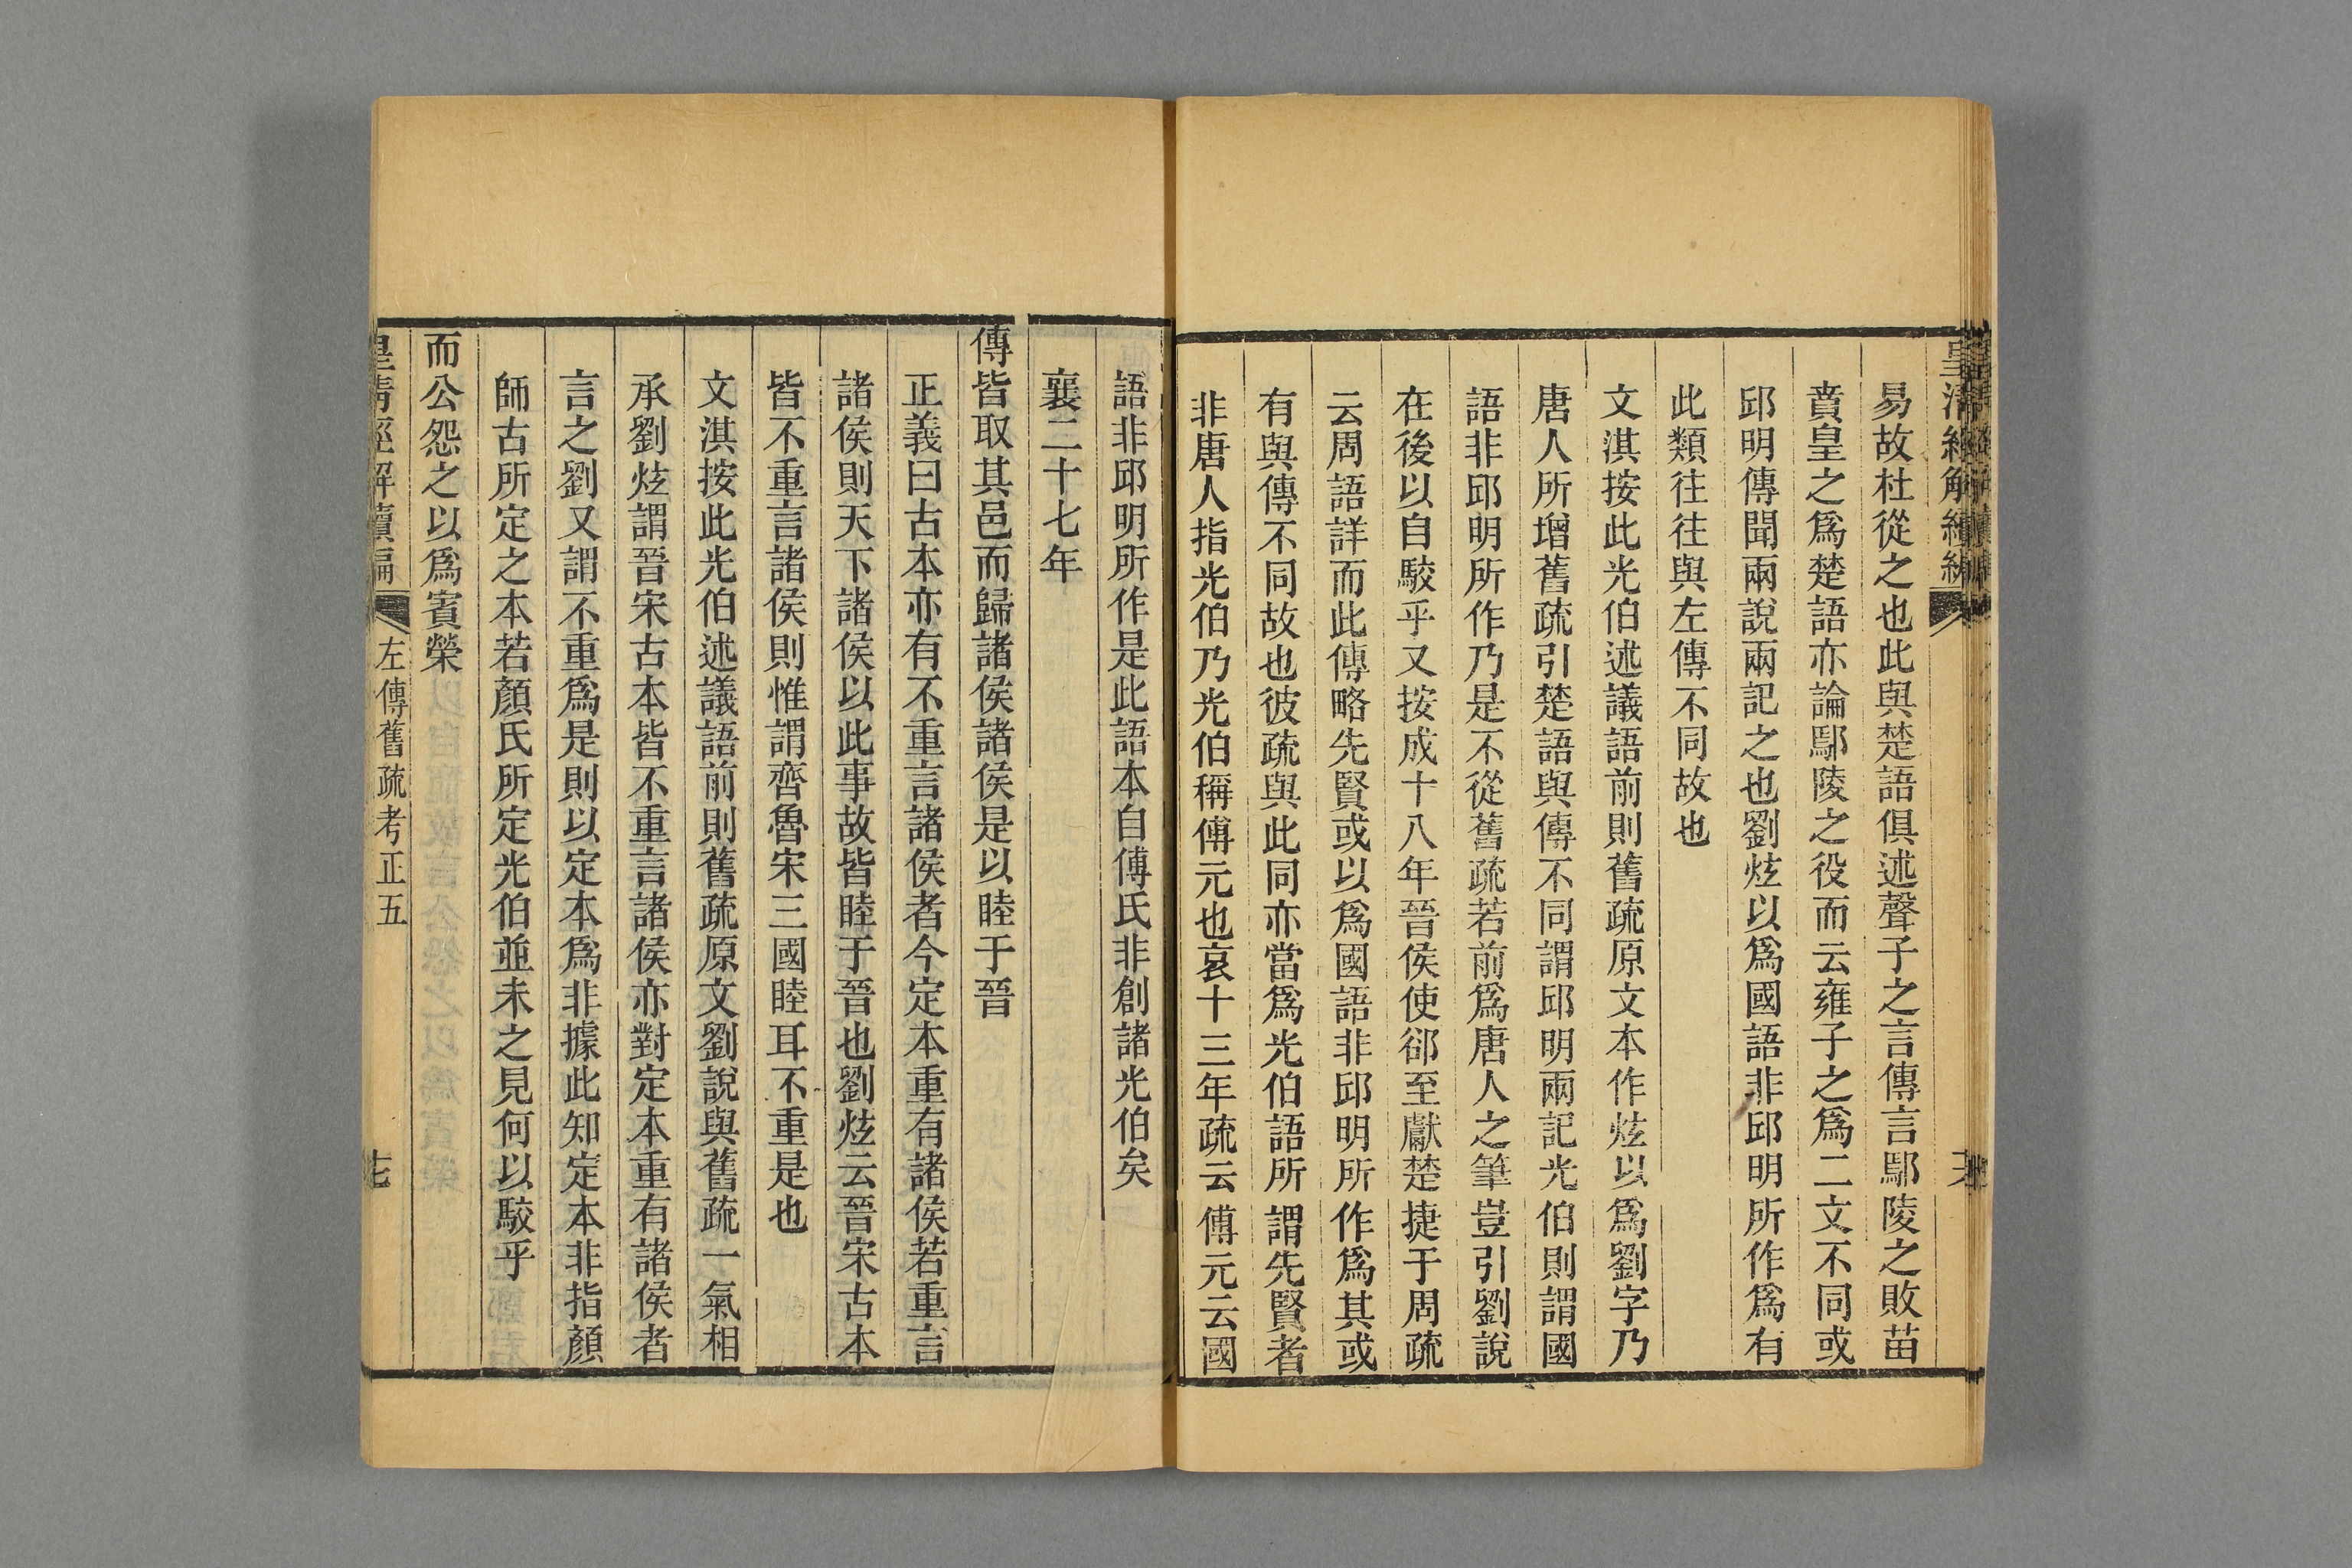 皇清經解續編
易故杜從之也此與楚語俱述聲子之言傳言鄢陵之敗苗
賁皇之爲楚語亦論鄢陵之役而云雍子之爲二文不同或
邱明傳聞兩說兩記之也劉炫以爲國語非邱明所作爲有
此類往往與左傳不同故也
文淇按此光伯述議語前則舊疏原文本作炫以爲劉字乃
唐人所增舊疏引楚語與傳不同謂邱明兩記光伯則謂國
語非邱明所作乃是不從舊疏若前爲唐人之筆豈引劉說
在後以自駮乎又按成十八年晉侯使郤至獻楚捷于周疏
云周語詳而此傳略先賢或以爲國語非邱明所作爲其或
有與傳不同故也彼疏與此同亦當爲光伯語所謂先賢者
非唐人指光伯乃光伯稱傅元也哀十三年疏云傅元云國
語非邱明所作是此語本自傅氏非創諸光伯矣
襄二十七年
傳皆取其邑而歸諸侯諸侯是以睦于晉
正義曰古本亦有不重言諸侯者今定本重有諸侯若重言
諸侯則天下諸侯以此事故皆睦于晉也劉炫云晉宋古本
皆不重言諸侯則惟謂齊魯宋三國睦耳不重是也
文淇按此光伯述議語前則舊疏原文劉說與舊疏一氣相
承劉炫謂晉宋古本皆不重言諸侯亦對定本重有諸侯者
言之劉又謂不重爲是則以定本爲非據此知定本非指顏
師古所定之本若顏氏所定光伯並未之見何以駮乎
而公怨之以爲賓榮
皇清經解續編
左傳舊疏考正五
七